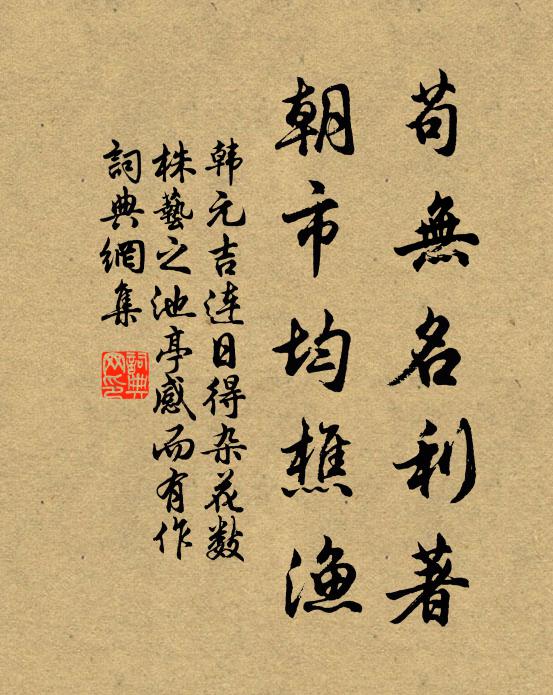 苟無名利著
朝市均樵漁
韩元吉连日得杂花数
株藝之池亭感而有作
詞典網集
詞典
网印